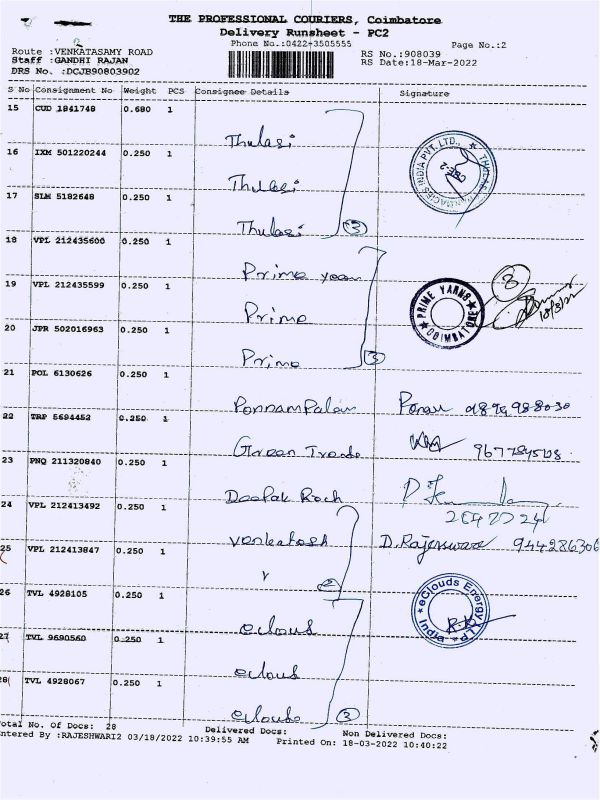 THE PROFESSIONAL COURIERS, Coimbatore
Delivery Runsheet - PC2
Phone No.:0422-3505555
Page No.:2
Route :VENKATASAMY ROAD
Staff :GANDHI RAJAN
DRS No. :DCJB90803902
RS No.:908039
RS Date:18-Mar-2022
S No Consignment No Weight PCS Consignee Details Signature
15 CUD 1841748 0.680 1
Thulasi
16 IXM 501220244 0.250 1
Thulasi
17 SLM 5182648 0.250 1
Thulasi 3
THULASI PHARMACIES INDIA PVT. LTD.,
CBE-2
18 VPL 212435600 0.250 1
Prime yarn
19 VPL 212435599 0.250 1
Prime
PRIME YARNS COIMBATORE
8
18/3/22
20 JPR 502016963 0.250 1
Prime 3
21 POL 6130626 0.250 1
Ponnampalam
22 TRP 5694452 0.250 1
Green Trends
23 PNQ 211320840 0.250 1
Deepak Roch
24 VPL 212413492 0.250 1
Venkatesh D. Rajeswari 944286306
25 VPL 212413847 0.250 1
v 2
26 TVL 4928105 0.250 1
eclous
eClouds Energy LLP India
27 TVL 9690560 0.250 1
eclous
28 TVL 4928067 0.250 1
eclouds 3
otal No. Of Docs: 28 Delivered Docs: Non Delivered Docs:
ntered By :RAJESHWARI2 03/18/2022 10:39:55 AM Printed On: 18-03-2022 10:40:22